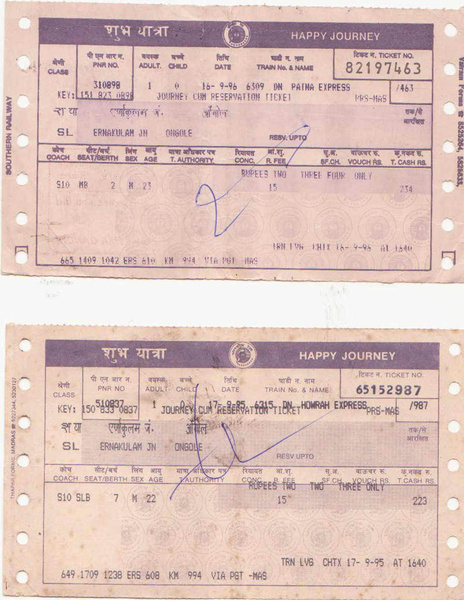 शुभ यात्रा HAPPY JOURNEY
श्रेणी पी एन आर न. वयस्क बच्चे तिथि गाडी न. व नाम टिकट न. TICKET NO.
CLASS PNR NO. ADULT. CHILD DATE TRAIN No. & NAME 82197463
310898 1 0 16- 9-96 6309 DN PATNA EXPRESS /463
KEY: 151 823 0898 JOURNEY CUM RESERVATION TICKET PRS-MAS
एर्णाकुलम जं. अंगोल तक/से आरक्षित
SL ERNAKULAM JN ONGOLE RESV.UPTO
कोच सीट/बर्थ लिंग आयु यात्रा अधिकार पत्र रियायत आ.शु. सू.अ. वाऊचर सं. कु.नकद रु.
COACH SEAT/BERTH SEX AGE T. AUTHORITY. CONC. R. FEE SF.CH. VOUCH RS. T. CASH RS.
RUPEES TWO THREE FOUR ONLY
S10 MB 2 M 23 15 234
TRN LVG CHTX 16- 9-96 AT 1640
665 1409 1042 ERS 610 KM 994 VIA PGT -MAS
SOUTHERN RAILWAY
शुभ यात्रा HAPPY JOURNEY
श्रेणी पी एन आर न. वयस्क बच्चे तिथि गाडी न. व नाम टिकट न. TICKET NO.
CLASS PNR NO ADULT CHILD DATE TRAIN No. & NAME 65152987
510837 1 17- 9-95 6315 DN HOWRAH EXPRESS /987
KEY: 150 833 0837 JOURNEY CUM RESERVATION TICKET PRS-MAS
एर्णाकुलम जं. अंगोल तक/से आरक्षित
SL ERNAKULAM JN ONGOLE RESV UPTO
कोच सीट/बर्थ लिंग आयु यात्रा अधिकार पत्र रियायत आ.शु. सू.अ. वाऊचर सं. कु.नकद रु.
COACH SEAT/BERTH SEX AGE T. AUTHORITY CONC. R. FEE SF.CH. VOUCH RS. T. CASH RS.
RUPEES TWO TWO THREE ONLY
S10 SLB 7 M 22 15 223
TRN LVG CHTX 17- 9-95 AT 1640
649 1709 1238 ERS 608 KM 994 VIA PGT -MAS